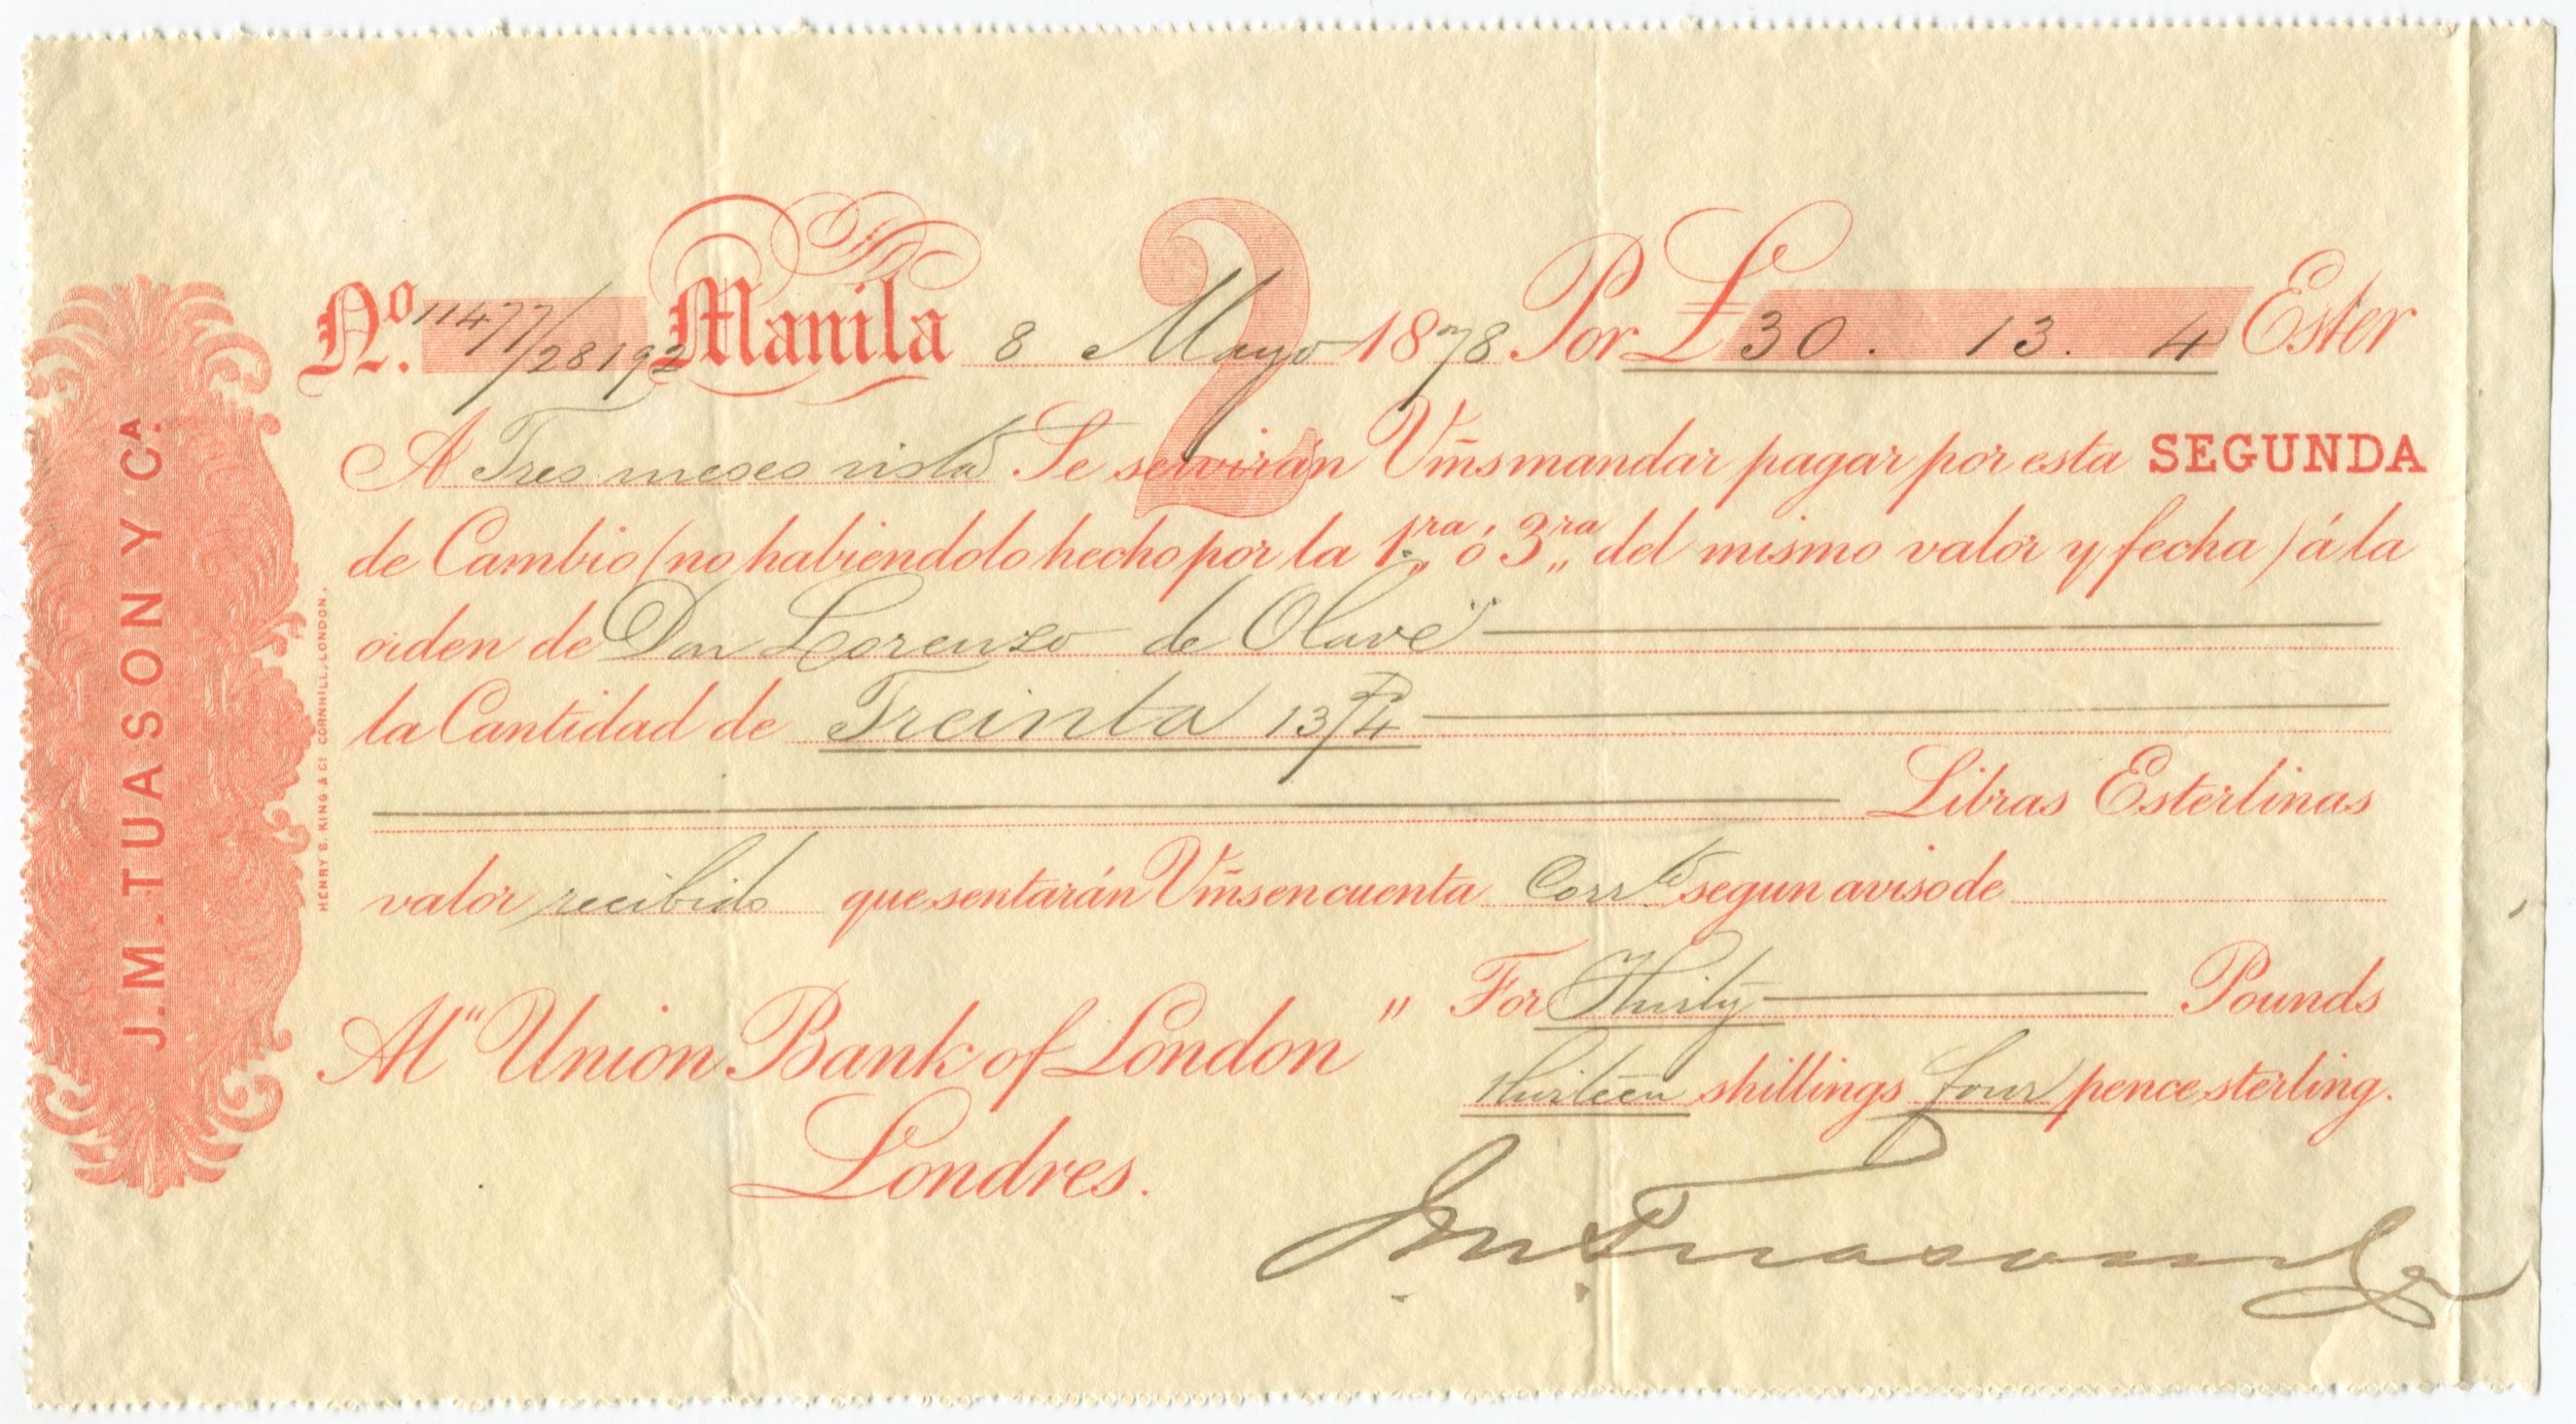 J. M. TUASON Y Cᴬ.
HENRY S. KING & Cº CORNHILL, LONDON.
2
Nº. 11477/28192 Manila 8 Mayo 1878 Por £ 30. 13. 4 Ester
A Tres meses vista Se servirán Vm̃s mandar pagar por esta SEGUNDA
de Cambio (no habiendolo hecho por la 1ʳᵃ ó 3ʳᵃ del mismo valor y fecha) á la
orden de Don Lorenzo de Olave
la Cantidad de Treinta 13/4
Libras Esterlinas
valor recibido que sentarán Vm̃s en cuenta Corrᵗᵉ segun aviso de
Al "Union Bank of London" For Thirty Pounds
thirteen shillings four pence sterling.
Londres.
J. M. Tuason y Cª